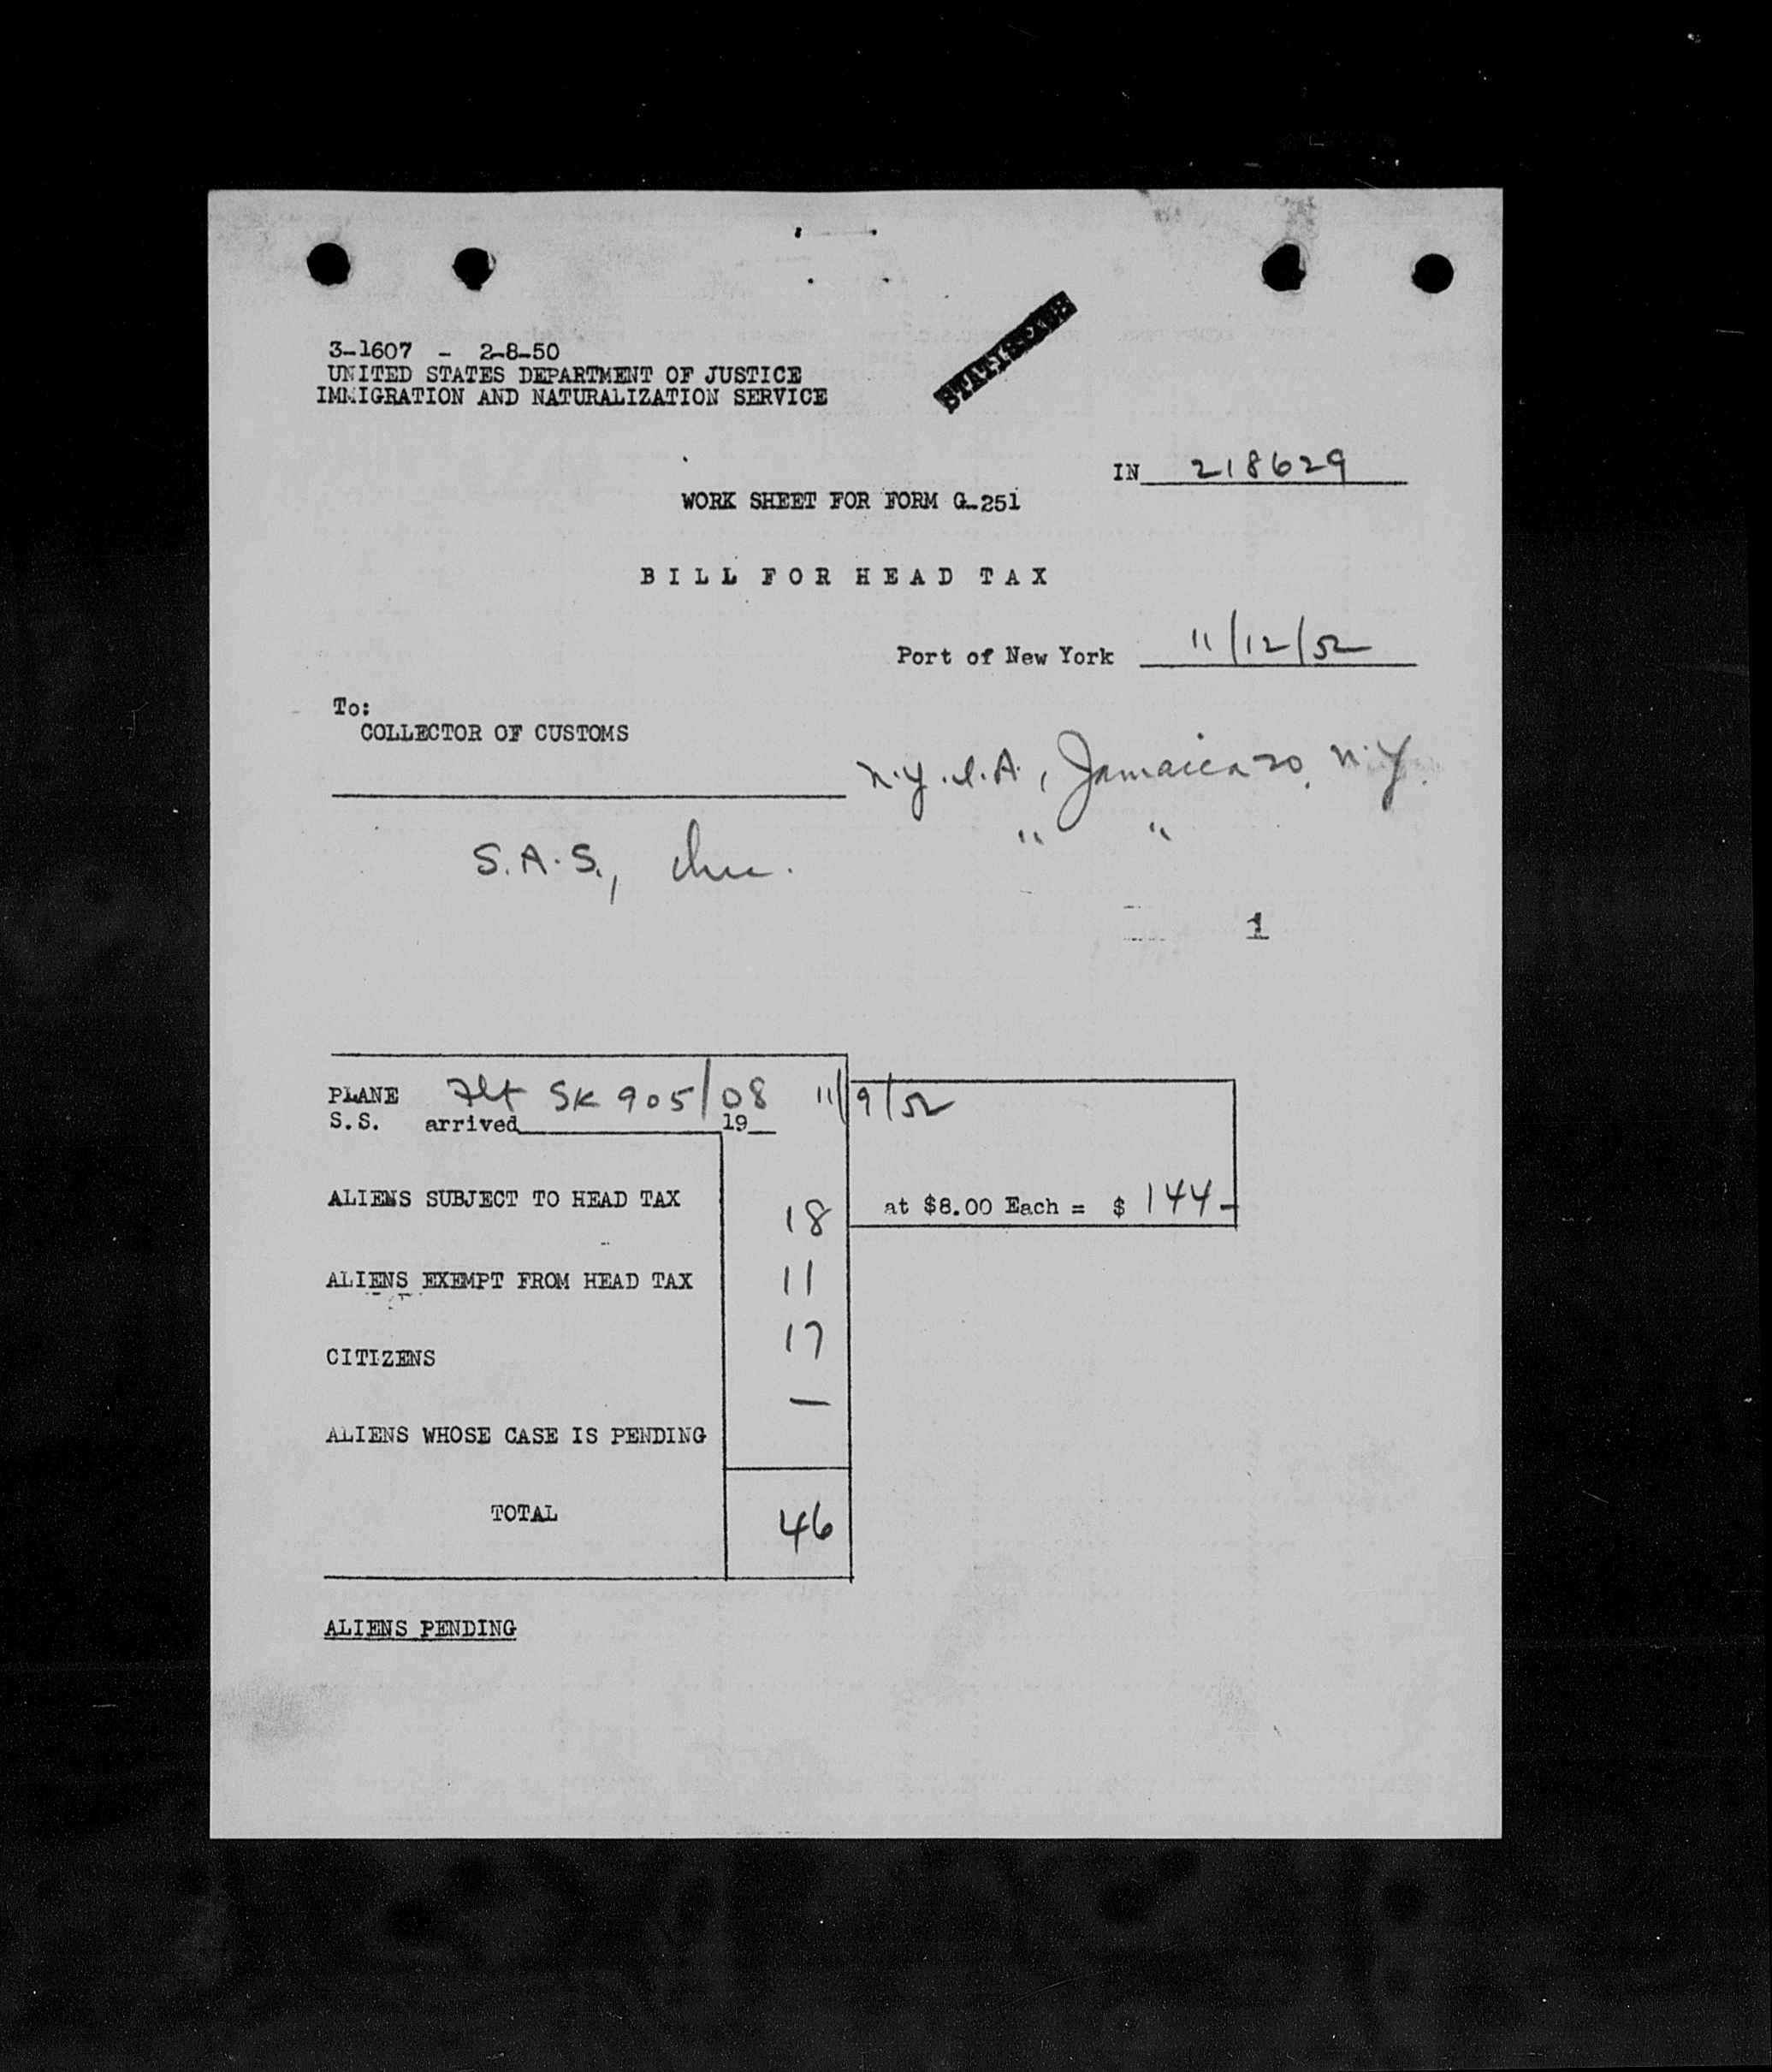 3-1607 - 2-8-50
UNITED STATES DEPARTMENT OF JUSTICE
IMMIGRATION AND NATURALIZATION SERVICE
IN 218629
WORK SHEET FOR FORM G-251
BILL FOR HEAD TAX
Port of New York 11/12/52
To:
COLLECTOR OF CUSTOMS
N.Y.I.A., Jamaica 30, N.Y.
S.A.S., Inc. " "
1
PLANE Flt SK 905/08 11/9/52
S.S. arrived 19
ALIENS SUBJECT TO HEAD TAX 18 at $8.00 Each = $ 144-
ALIENS EXEMPT FROM HEAD TAX 11
CITIZENS 17
ALIENS WHOSE CASE IS PENDING —
TOTAL 46
ALIENS PENDING